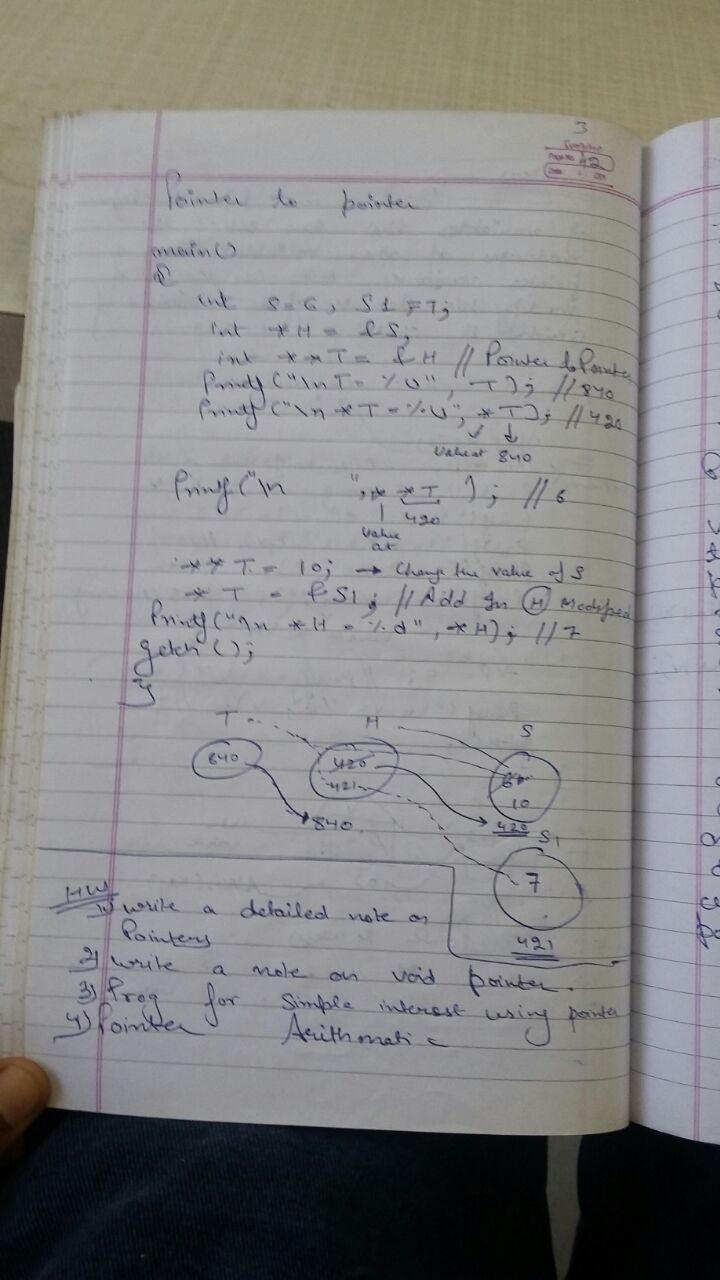 3
Page No. 42
Date
Pointer to pointer
main()
{
int S=6, S1=7;
int *H = &S;
int **T = &H // Pointer to Pointer
Printf("\nT=%u", T); // 840
Printf("\n *T=%u", *T); // 420
value at 840
Printf("\n ", * *T ); // 6
420
value
at
**T = 10; → Change the value of S
*T = &S1; // Add In H Modified
Printf("\n *H = %d", *H); // 7
getch();
}
T H S
840 420 6
421 10
840 420 S1
7
421
HW
1) write a detailed note on
Pointers
2) write a note on void pointer.
3) Prog for Simple interest using pointer
4) Pointer Arithmatic